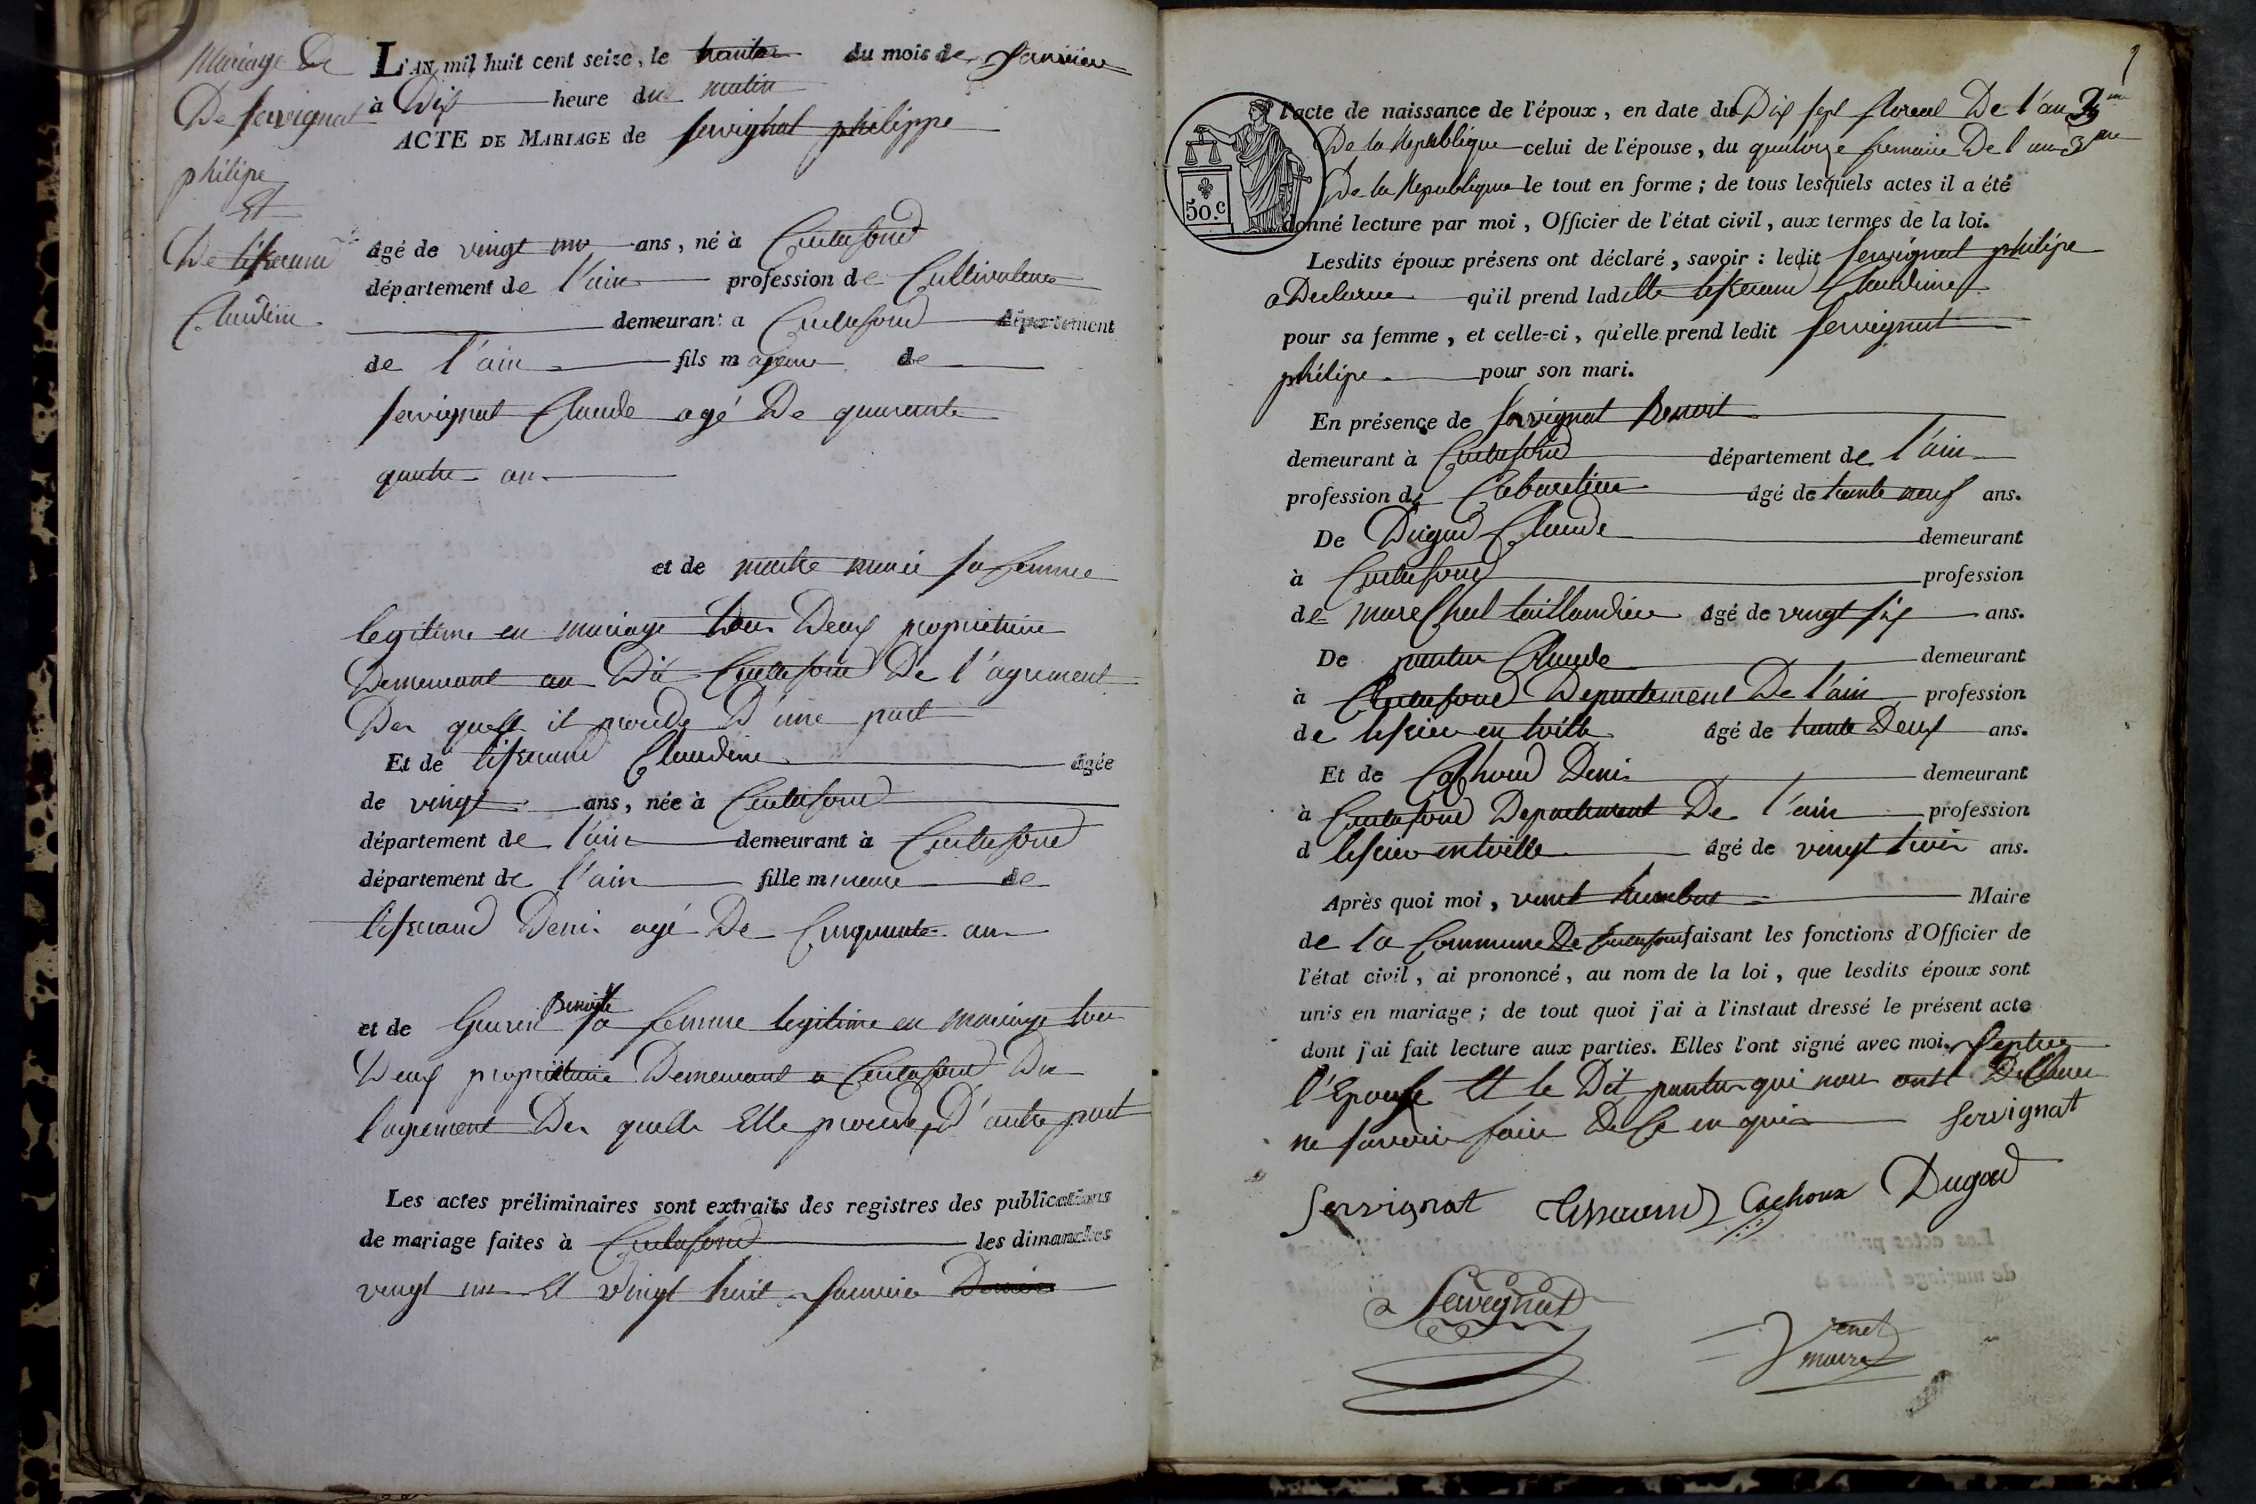 Mariage De
De servignat
philipe
Et
De tisseraud
Claudine
L'AN mil huit cent seize, le trente du mois de Janvier
à Dix heure du matin
ACTE DE MARIAGE de servignat philippe
âgé de vingt un ans, né à Curtafond
département de l'ain profession de Cultivateur
demeurant a Curtafond département
de l'ain fils majeur de
servignat Claude agé De quarante
quatre an
et de marie sa femme
legitime en mariage tous Deux proprietaire
Demeurant au Dit Curtafond De l'agrement
Des quels il procede D'une part
Et de tisseraud Claudine âgée
de vingt ans, née à Curtafond
département de l'ain demeurant à Curtafond
département de l'ain fille mineure de
tisseraud Denis agé De Cinquante an
Benoite
et de Guerin sa femme legitime en mariage tous
Deux proprietaire Demeurant a Curtafond De
l'agrement Des quels Elle procede D'autre part
Les actes préliminaires sont extraits des registres des publications
de mariage faites à Curtafond les dimanches
vingt un Et vingt huit Janvier Dernier
l'acte de naissance de l'époux, en date du Dix sept floreal De l'an 2me
De la Republique celui de l'épouse, du quatorze frimaire De l'an 3me
De la Republique le tout en forme ; de tous lesquels actes il a été
50.c
donné lecture par moi, Officier de l'état civil, aux termes de la loi.
Lesdits époux présens ont déclaré, savoir : ledit servignat philipe
a Declarue qu'il prend ladite tisseraud Claudine
pour sa femme, et celle-ci, qu'elle prend ledit servignat
philipe pour son mari.
En présence de servignat Benoit
demeurant à Curtafond département de l'ain
profession de Cabaretier âgé de trente neuf ans.
De Dugad Claude demeurant
à Curtafond profession
de marechal taillandier âgé de vingt six ans.
De Claude demeurant
à Curtafond Departement De l'ain profession
de tissier en toille âgé de trente Deux ans.
Et de Cachoud Denis demeurant
à Curtafond Departement De l'ain profession
d tissier en toille âgé de vingt trois ans.
Après quoi moi, venet humbert Maire
de la Commune De Curtafond faisant les fonctions d'Officier de
l'état civil, ai prononcé, au nom de la loi, que lesdits époux sont
unis en mariage ; de tout quoi j'ai à l'instant dressé le présent acte
dont j'ai fait lecture aux parties. Elles l'ont signé avec moi.
l'Epouse Et le Dit qui nous ont Declarer
ne savoir faire De Ce en quis servignat
Servignat tisseraud Cachoux Dugad
Servignat
venet
maire